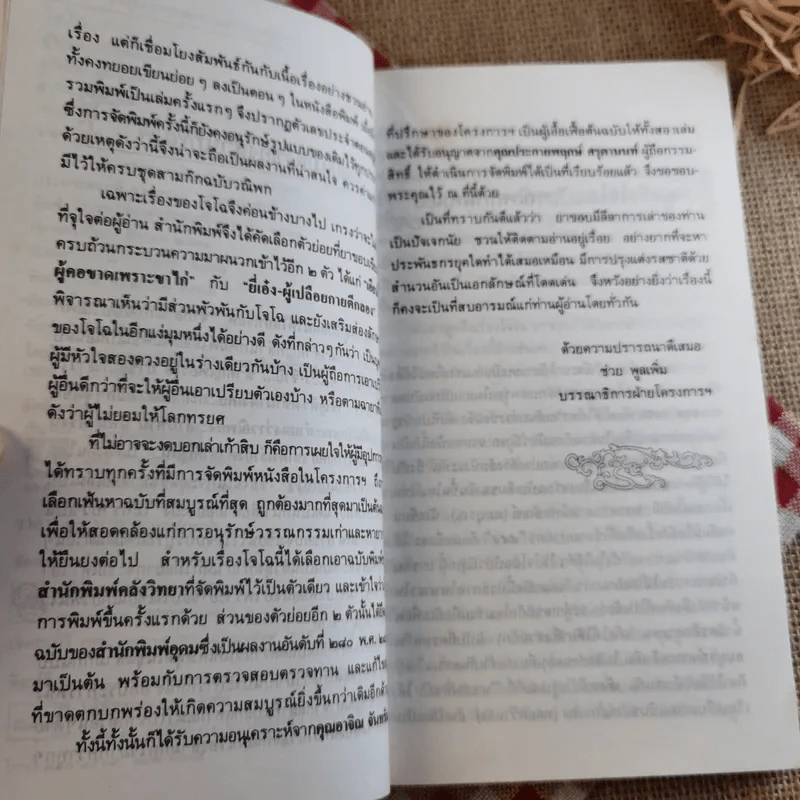 เรื่อง แต่ก็เชื่อมโยงสัมพันธ์กันกับเนื้อเรื่องอย่าง
ทั้งคงทยอยเขียนย่อย ๆ ลงเป็นตอน ๆ ในหนังสือพิมพ์
รวมพิมพ์เป็นเล่มครั้งแรกๆ จึงปรากฏตัวเลขประจำ
ซึ่งการจัดพิมพ์ครั้งนี้ก็ยังคงอนุรักษ์รูปแบบของเดิมไว้
ด้วยเหตุดังว่านี้จึงน่าจะถือเป็นผลงานที่น่าสนใจ
มีไว้ให้ครบชุดสามก๊กฉบับวณิพก
เฉพาะเรื่องของโจโฉจึงค่อนข้างบางไป เกรงว่าจะ
ที่จุใจต่อผู้อ่าน สำนักพิมพ์จึงได้คัดเลือกตัวย่อยที่ยาขอบ
ครบถ้วนกระบวนความมาผนวกเข้าไว้อีก ๒ ตัว ได้แก่
ผู้คอขาดเพราะขาไก่" กับ "ยี่เอ๋ง-ผู้เปลือยกายตีกลอง"
พิจารณาเห็นว่ามีส่วนพัวพันกับโจโฉ และยังเสริมส่อง
ของโจโฉในอีกแง่มุมหนึ่งได้อย่างดี ดังที่กล่าวๆกันว่า
ผู้มีหัวใจสองดวงอยู่ในร่างเดียวกันบ้าง เป็นผู้ถือการเอา
ผู้อื่นดีกว่าที่จะให้ผู้อื่นเอาเปรียบตัวเองบ้าง หรือตาม
ดังว่าผู้ไม่ยอมให้โลกทรยศ
ที่ไม่อาจจะงดบอกเล่าเก้าสิบ ก็คือการเผยใจให้ผู้มี
ได้ทราบทุกครั้งที่มีการจัดพิมพ์หนังสือในโครงการฯ
เลือกเฟ้นหาฉบับที่สมบูรณ์ที่สุด ถูกต้องมากที่สุดมาเป็นต้น
เพื่อให้สอดคล้องแก่การอนุรักษ์วรรณกรรมเก่าและ
ให้ยืนยงต่อไป สำหรับเรื่องโจโฉนี้ได้เลือกเอาฉบับพิมพ์
สำนักพิมพ์คลังวิทยาที่จัดพิมพ์ไว้เป็นตัวเดียว และเข้าใจ
การพิมพ์ขึ้นครั้งแรกด้วย ส่วนของตัวย่อยอีก ๒ ตัวนั้นได้
ฉบับของสำนักพิมพ์อุดมซึ่งเป็นผลงานอันดับที่ ๒๘๐ พ.ศ.
มาเป็นต้น พร้อมกับการตรวจสอบตรวจทาน และแก้ไข
ที่ขาดตกบกพร่องให้เกิดความสมบูรณ์ยิ่งขึ้นกว่าเดิมอีก
ทั้งนี้ทั้งนั้นก็ได้รับความอนุเคราะห์จากคุณอาจิณ
ที่ปรึกษาของโครงการฯ เป็นผู้เอื้อเฟื้อต้นฉบับให้ทั้งสองเล่ม
และได้รับอนุญาตจากคุณประกายพฤกษ์ สรุตานนท์ ผู้ถือกรรม-
สิทธิ์ ให้ดำเนินการจัดพิมพ์ได้เป็นที่เรียบร้อยแล้ว จึงขอขอบ-
พระคุณไว้ ณ ที่นี้ด้วย
เป็นที่ทราบกันดีแล้วว่า ยาขอบมีลีลาการเล่าของท่าน
เป็นปัจเจกนัย ชวนให้ติดตามอ่านอยู่เรื่อย อย่างยากที่จะหา
ประพันธกรยุคใดทำได้เสมอเหมือน มีการปรุงแต่งรสชาติด้วย
สำนวนอันเป็นเอกลักษณ์ที่โดดเด่น จึงหวังอย่างยิ่งว่าเรื่องนี้
ก็คงจะเป็นที่สบอารมณ์แก่ท่านผู้อ่านโดยทั่วกัน
ด้วยความปรารถนาดีเสมอ
ช่วย พูลเพิ่ม
บรรณาธิการฝ่ายโครงการฯ